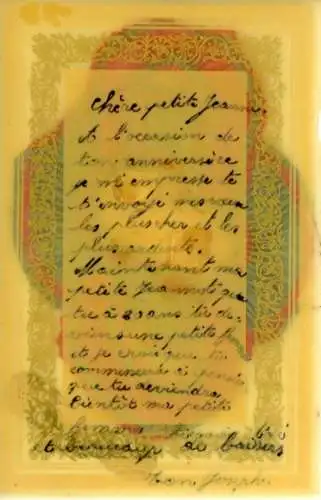 Chère petite Jeanne,
A l'occasion de
ton anniversaire
je m'empresse de
t'envoyé mes vœux
les plus cher et les
plus ardents.
Maintenant ma
petite Jeannot que
tu à 20 ans tu de-
viens une petite
et je crois que tu
commences à
que tu deviendra
bientôt ma petite
femme
et beaucoup de baisers
Ton Joseph